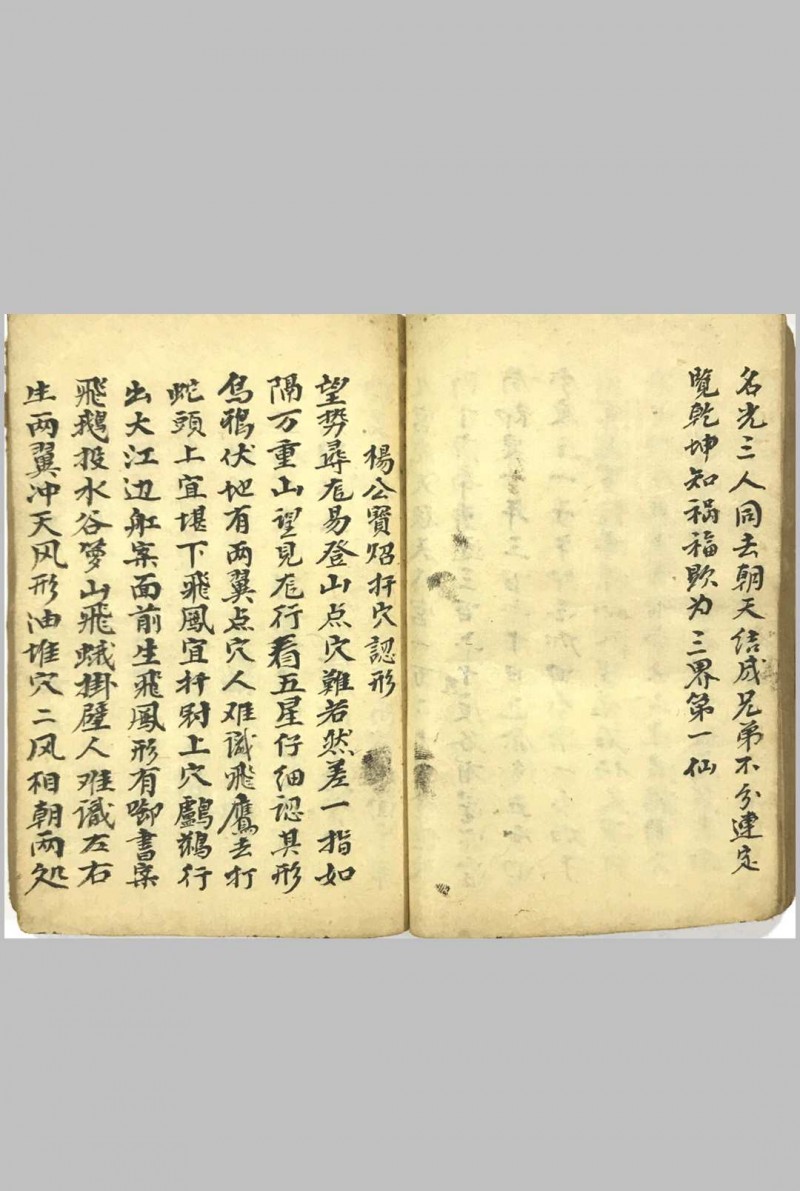 名光三人同去朝天结成兄弟不分連定
覽乾坤知祸福欤为三界第一仙
楊公寶炤扦穴認形
望势尋龙易登山点穴難若然差一指如
隔万重山望見龙行看五星仔细認其形
烏鴉伏地有两翼点穴人难識飛鷹去打
蛇頭上宜堪下飛鳳宜扦尉上穴鸕鷀行
出大江边舡案面前生飛鳳形有啣書案
飛鵝投水谷箩山飛蛾掛壁人难識左右
生两翼冲天风形油堆穴二风相朝两处